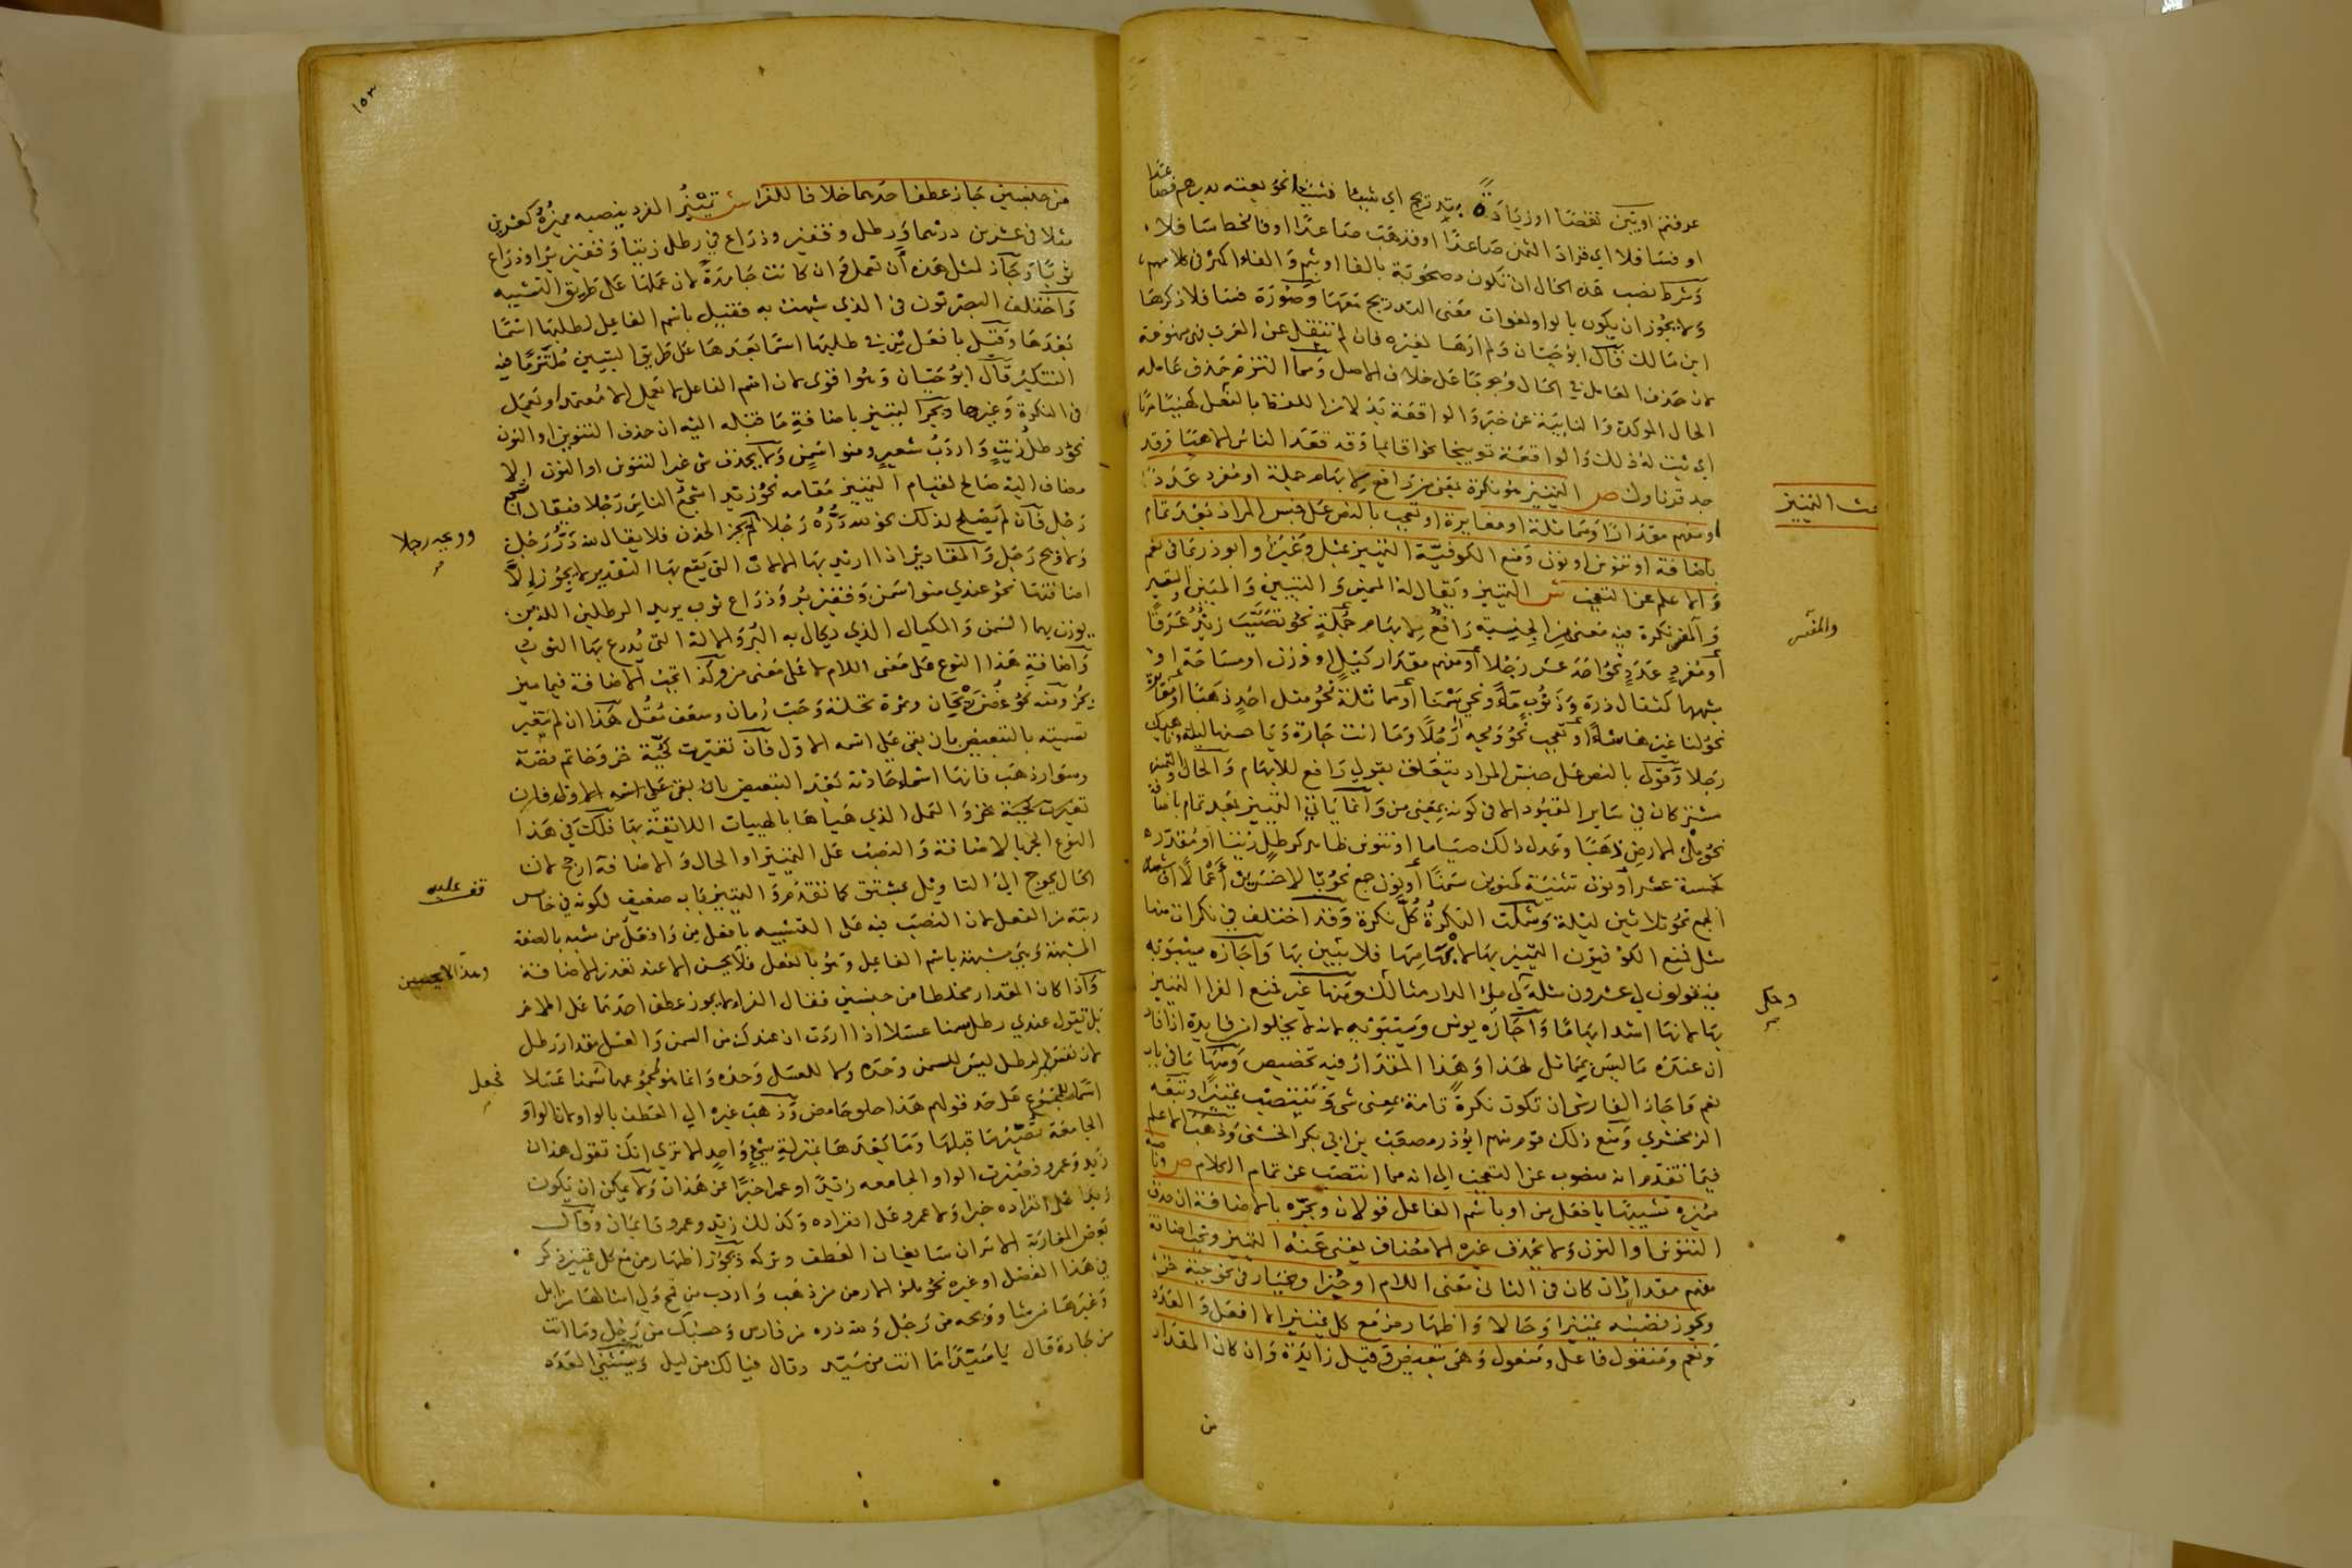 عرفتم او تبين نقصا او زيادة بتدريج اي شيئا فشيئا نحو بعته بدرهم فصاعدا
او فسافلا اي فزاد الثمن صاعدا او فذهب صاعدا او فانحط سافلا
وشرط نصب هذه الحال ان تكون مصحوبة بالفا او بثم والفا اكثر في كلامهم
ولا يجوز ان يكون بالواو لفوات معنى التدريج معها وصورة فسافلا ذكرها
ابن مالك قال ابو حيان ولم ارها لغيره فان لم تنقل عن العرب فهي ممنوعة
لان حذف العامل في الحال وجوبا على خلاف الاصل ومما التزم حذف عامله
الحال الموكدة والنايبة عن خبر والواقعة بدلا من اللفظ بالفعل كهنيئا مريا
اي ثبت له ذلك والواقعة توبيخا نحو اقايما وقد قعد الناس الاهيا وقد
جد قرناوك ص التمييز هو نكرة بمعنى من رافع لابهام جملة او مفرد عددا
او مبهم مقدارا او مماثلة او مغايرة او تعجب بالنص على جنس المراد بعد تمام
باضافة او تنوين او نون ومنع الكوفية التمييز بمثل وغير وابو ذر ما في نعم
والاعلم عن التعجب ش التمييز ويقال له المميز والتبيين والمبين والتفسير
والمفسر نكرة فيه معنى من الجنسية رافع لابهام جملة نحو تصبب زيد عرقا
او مفرد عدد نحو احد عشر رجلا او مبهم مقدار كيل او وزن او مساحة او
شبهها كمثقال ذرة وذنوب ماء ونحي سمنا او مماثلة نحو مثل احد ذهبا او مغايرة
نحو لنا غيرها شاء او تعجب نحو ويحه رجلا وما انت جارة ويا حسنها ليلة وناهيك
رجلا وقولي بالنص على جنس المراد يتعلق بقولي رافع للابهام والحال والتمييز
مشتركان في ساير القيود الا في كونه بمعنى من وانما ياتي التمييز بعد تمام باضافة
نحو ملء الارض ذهبا وعدل ذلك صياما او تنوين ظاهر كرطل زيتا او مقدر
كخمسة عشر او نون تثنية كمنوين سمنا او نون جمع نحو بالاخسرين اعمالا او شبه
الجمع نحو ثلاثين ليلة وشملت النكرة كل نكرة وقد اختلف في نكرات منها
مثل فمنع الكوفيون التمييز بها لابهامها فلا يبين بها واجازه سيبويه
فيقولون لي عشرون مثله وحكى لي ملء الدار مثالك ومنها غير فمنع الفرا التمييز
بها لانها اشد ابهاما واجازه يونس وسيبويه لانه لا يخلوا من فايدة اذ افاد
ان عنده ما ليس بمماثل لهذا وهذا المقدار فيه تخصيص ومنها ما في باب
نعم فاجاز الفارسي ان تكون نكرة تامة بمعنى شي وتنتصب تمييزا وتبعه
الزمخشري ومنع ذلك قوم منهم ابو ذر مصعب بن ابي بكر الخشني وذهب الاعلم
فيما تقدم انه منصوب عن التعجب الى انه مما انتصب عن تمام الكلام ص وناصبه
مميزه تشبيها بافعل من او باسم الفاعل قولان ويجره بالاضافة ان حذف
التنوين او النون ولا يحذف غيره الا مضاف يغني عنه التمييز وتجب اضافة
مفهم مقدار ان كان في الثاني معنى اللام او جزا ويختار في نحو جبة خز
ويجوز نصبه تمييزا وحالا واظهار من مع كل تمييز الا افعل والعدد
ونعم ومنقول فاعل ومفعول وهي تبعيض وقيل زايدة وان كان المقدار
من
بحث التمييز
والمفسر
وحكى
١٥٣
من جنسين جاز عطف احدهما خلافا للفرا ش تمييز المفرد ينصبه مميزه كعشرين
مثلا في عشرين درهما ورطل وقفيز وذراع في رطل زيتا وقفيز برا وذراع
ثوبا وجاز لمثل هذه ان تعمل وان كانت جامدة لان عملها على طريق التشبيه
واختلف البصريون في الذي شبهت به فقيل باسم الفاعل لطلبها اسما
بعدها وقيل بافعل من في طلبها اسما بعدها على طريق التبيين ملتزما فيه
التنكير قال ابو حيان وهو اقوى لان اسم الفاعل لا يعمل الا معتمدا ويعمل
في النكرة وغيرها ويجر التمييز باضافة ما قبله اليه ان حذف التنوين او النون
نحو رطل زيت واردب شعير ومنوا سمن ولا يحذف شي غير التنوين او النون الا
مضاف اليه صالح لقيام التمييز مقامه نحو زيد اشجع الناس رجلا فيقال اشجع
رجل فان لم يصلح لذلك نحو لله دره رجلا لم يجز الحذف فلا يقال لله در رجل
ولا ويح رجل والمقادير اذا اريد بها الالات التي يقع بها التقدير لا يجوز الا
اضافتها نحو عندي منوا سمن وقفيز بر وذراع ثوب يريد الرطلين اللذين
يوزن بهما السمن والمكيال الذي يكال به البر والالة التي يذرع بها الثوب
واضافة هذا النوع على معنى اللام لا على معنى من وكذا تجب الاضافة فيما ميز
بجزء منه نحو غصن ريحان وثمرة نخلة وحب رمان وسعف مقل هذا ان لم يتغير
تسميته بالتبعيض بان بقي على اسمه الاول فان تغيرت كجبة خز وخاتم فضة
وسوار ذهب فانها اسما حادثة بعد التبعيض بان بقي على اسمه الاول فان
تغيرت كجبة خز والعمل الذي هياها بالهييات اللايقة بها فلك في هذا
النوع الجر بالاضافة والنصب على التمييز او الحال والاضافة ارجح لان
الحال يحوج الى التاويل بمشتق كما تقدم والتمييز بابه ضعيف لكونه في خامس
رتبة من الفعل لان النصب فيه على التشبيه بافعل من وافعل من مشبه بالصفة
المشبهة وهي مشبهة باسم الفاعل وهو بالفعل فلا يحسن الا عند تعذر الاضافة
واذا كان المقدار مخلطا من جنسين فقال الفراء لا يجوز عطف احدهما على الاخر
بل تقول عندي رطل سمنا عسلا اذا اردت ان عندك من السمن والعسل مقدار رطل
لان تفسير الرطل ليس للسمن وحده ولا للعسل وحده وانما هو مجموعهما سمنا عسلا
اسما للمجموع على حد قولهم هذا حلو حامض وذهب غيره الى العطف بالواو لان الواو
الجامعة تصير ما قبلها وما بعدها بمنزلة شيء واحد الا ترى انك تقول هذان
زيد وعمرو فصيرت الواو الجامعه زيدا وعمرا خبرا عن هذان ولا يمكن ان يكون
زيدا على انفراده خبرا ولا عمرو على انفراده وكذلك زيد وعمرو قايمان وقال
بعض المغاربة الامران سايغان العطف وتركه ويجوز اظهار من مع كل تمييز ذكر
في هذا الفصل او غيره نحو ملء الارض من ذهب واردب من قمح ولي امثالها من ابل
وغيرها من شا وويحه من رجل ولله دره من فارس وحسبك من رجل وما انت
من جارة قال يا سيدا ما انت من سيد وقال فيا لك من ليل ويستثنى العدد
وويحه رجلا
قف عليه
فجعل